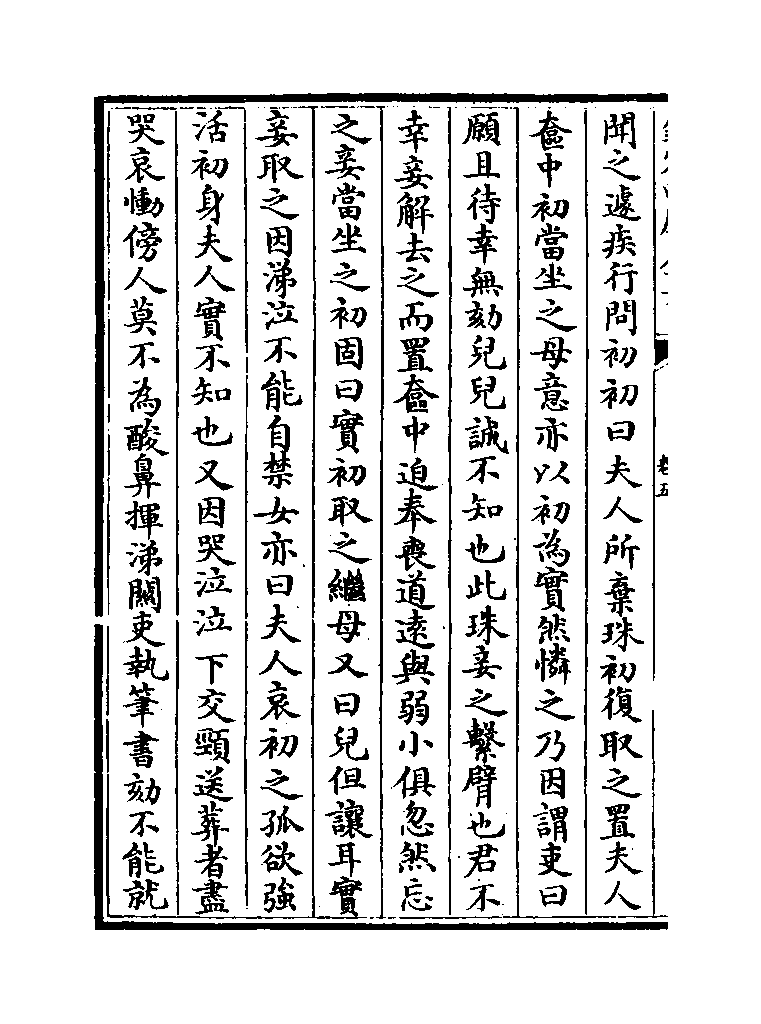 聞之遽疾行問初初曰夫人所棄珠初復取之置夫人
奩中初當坐之母意亦以初為實然憐之乃因謂吏曰
願且待幸無劾兒兒誠不知也此珠妾之繫臂也君不
幸妾解去之而置奩中迫奉喪道遠與弱小俱忽然忘
之妾當坐之初固曰實初取之繼母又曰兒但讓耳實
妾取之因涕泣不能自禁女亦曰夫人哀初之孤欲強
活初身夫人實不知也又因哭泣泣下交頸送葬者盡
哭哀慟傍人莫不為酸鼻揮涕關吏執筆書劾不能就
卷五